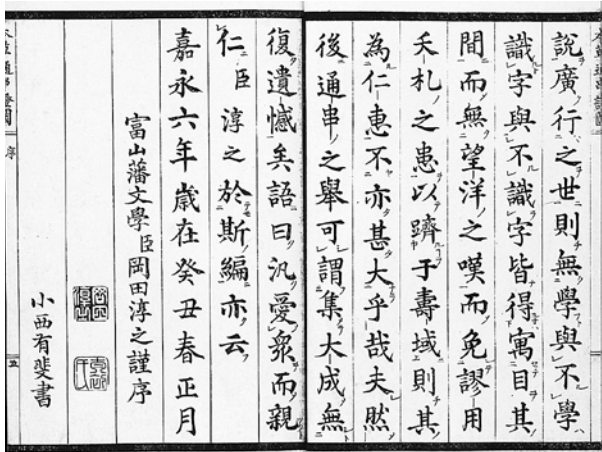 說廣行之世則無學與不學
識字與不識字皆得寓目其
間而無望洋之嘆而免謬用
夭札之患以躋于壽域則其
為仁惠不亦甚大乎哉夫然
後通串之舉可謂集大成無
復遺憾矣語曰汎愛衆而親
仁臣淳之於斯編亦云
嘉永六年歲在癸丑春正月
富山藩文學臣岡田淳之謹序
小西有斐書
序
五